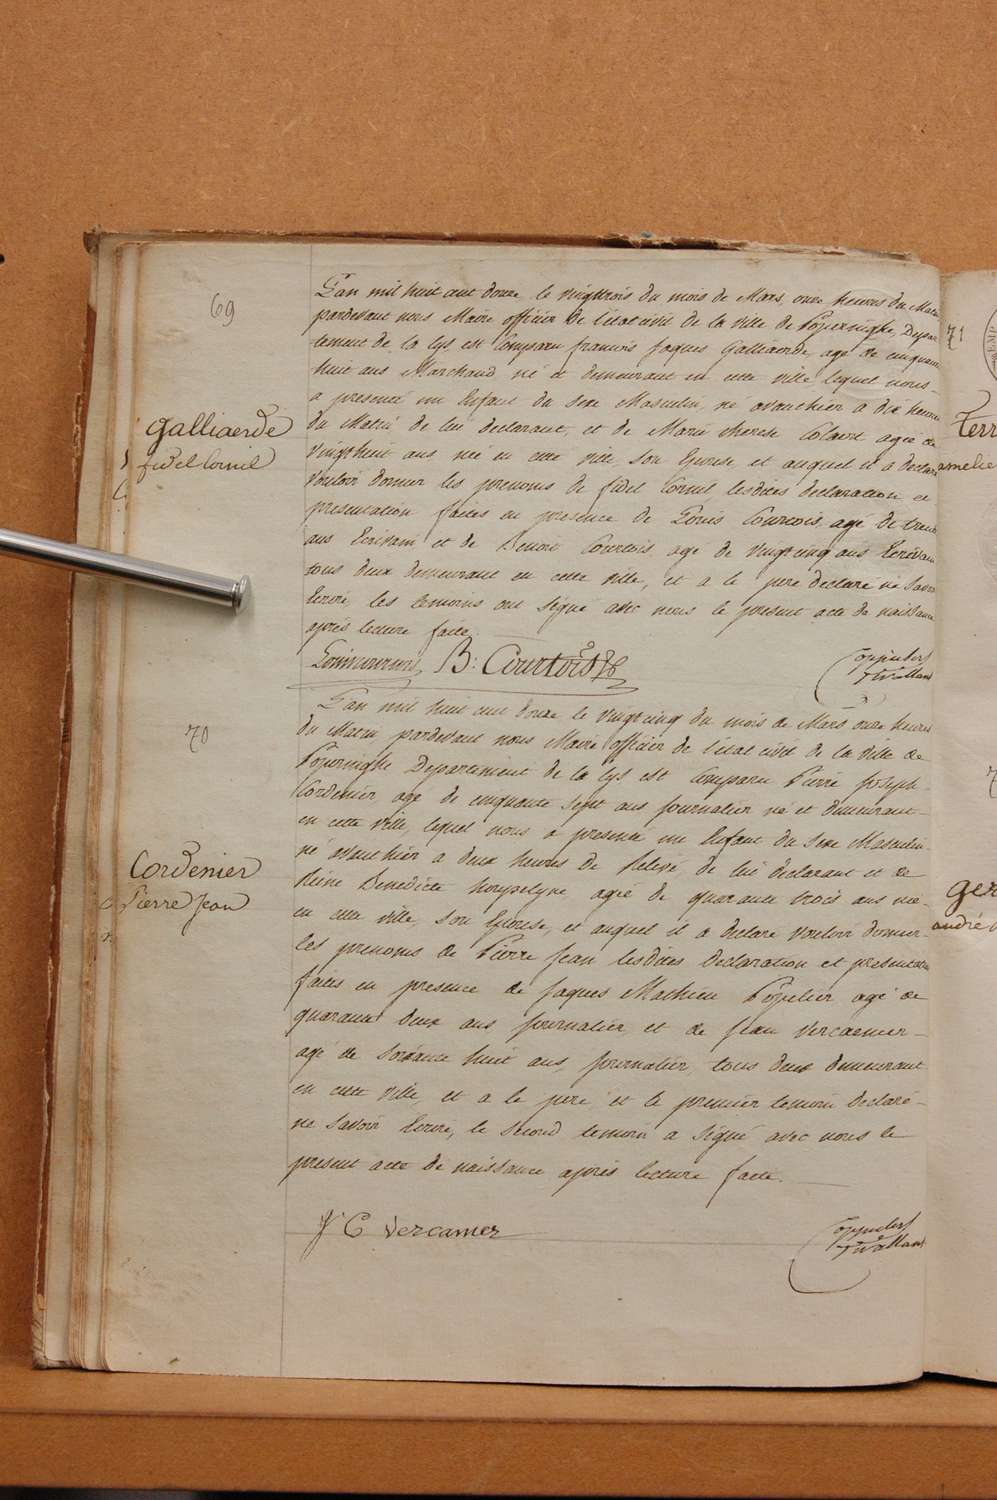 69
Galliaerde
fidel Cornil
L'an mil huit cent douze le vingttrois du mois de Mars onze heures du Matin
pardevant nous Maire officier de l'etat civil de la ville de Poperinghe, Depar
tement de la Lys est Comparu francois Jaques Galliaerde, agé de cinquante
huit ans Marchand né et demeurant en cette ville lequel nous
a presenté un Enfant du sexe Masculin né avanthier a dix heures
du Matin de lui declarant, et de Marie therese Colaert agée de
vingthuit ans née en cette ville son Epouse, et auquel il a declaré
vouloir donner les prenoms de fidel Cornil lesdites declaration et
presentation faites en presence de Louis Courtois, agé de trente
ans Ecrivain et de Benoit Courtois, agé de vingtcinq ans Ecrivain
tous deux demeurant en cette ville, et a le pere declaré ne savoir
Ecrire, les temoins ont signé avec nous le present acte de naissance
après lecture faite.
Louis courtois B: Courtois
70
Cordenier
Pierre Jean
L'an mil huit cent douze le vingtcinq du mois de Mars onze heures
du Matin pardevant nous Maire officier de l'etat civil de la ville de
Poperinghe Departement de la Lys est Comparu Pierre Joseph
Cordenier agé de cinquante sept ans Journalier né et demeurant
en cette ville, lequel nous a presenté un Enfant du sexe Masculin
né avanthier a deux heures de Relevé, de lui declarant et de
Reine Benedicte agée de quarante trois ans née
en cette ville, son Epouse, et auquel il a declaré vouloir donner
les prenoms de Pierre Jean lesdites declaration et presentation
faites en presence de Jaques Mathieu Popelier agé de
quarante deux ans journalier, et de Jean Vercaemer
agé de soixante huit ans, journalier, tous deux demeurant
en cette ville, et a le pere et le premier temoin declaré
ne savoir Ecrire, le second temoin a signé avec nous le
present acte de naissance après lecture faite.
J C Vercamer
71
Terr
amelie
ger
andré